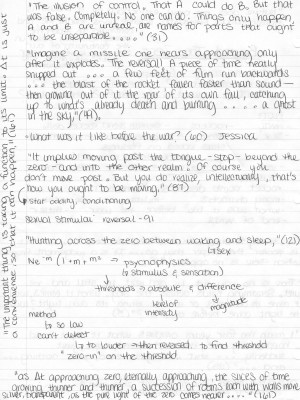 "The illusion of control. That A could do B. But that
was false. Completely. No one can do. Things only happen,
A and B are unreal, are names for parts that ought
to be inseparable...." (31)
"Imagine a missile one hears approaching only
after it explodes. The reversal! A piece of time neatly
snipped out... a few feet of film run backwards
... the blast of the rocket, fallen faster than sound—
then growing out of it the roar of its own fall, catching
up to what's already death and burning.... a ghost
in the sky," (49).
"What was it like before the war? (60) Jessica
"It implies moving past the tongue-stop - beyond the
zero - and into the other realm. Of course you
don't move past. But you do realize, intellectually, that's
how you ought to be moving." (87)
conditioning
sexual stimulai reversal -91
"Hunting across the zero between waking and sleep," (121)
sex
psychophysics
stimulus & sensation)
thresholds → absolute & difference
level of
intensity
magnitude
method
so low
can't detect
to louder → then reversed. to find threshold
"zero-in" on the threshold
"as Δt approaching zero, eternally approaching, the slices of time
growing thinner and thinner, a succession of rooms each with walls more
silver, transparent, as the pure light of the zero comes nearer...." (161)
"The important thing is taking a function to its limit. Δt is just
a convenience, so that it can happen,"